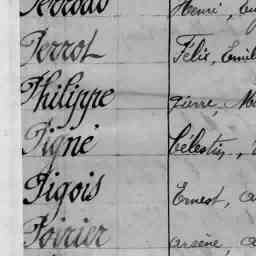 Henri,
Perrot Félix, Emil
Philippe Pierre, Ma
Pigné Célestin,
Pigois Ernest, A
Poirier Arsène, A